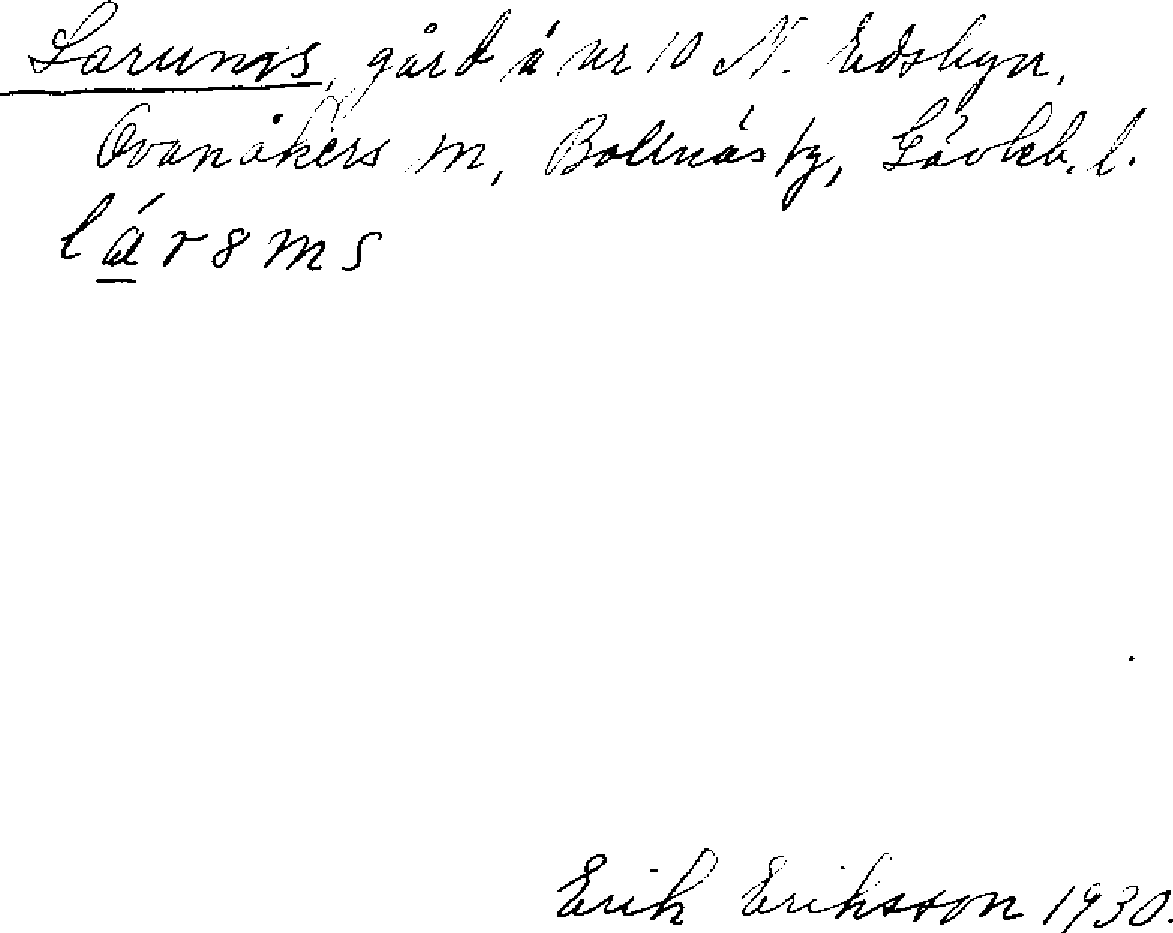 Larums, gård å nr 10 N. Edsbyn,
Ovanåkers sn, Bollnäs tg, Gävleb. l.
lárəms
Erik Eriksson 1930.